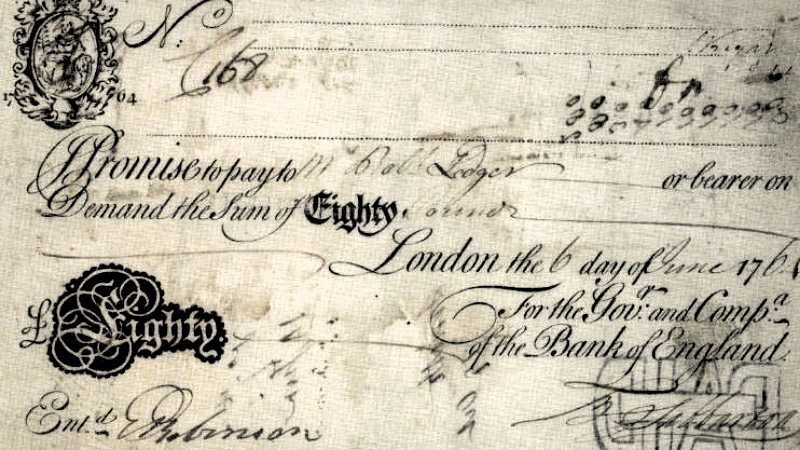 No
C168
1764
I Promise to pay to Mr Robt Ledger or bearer on
Demand the Sum of Eighty Pounds
London the 6 day of June 176
For the Govr. and Compa.
£ Eighty
of the Bank of England
Entd. Robinson